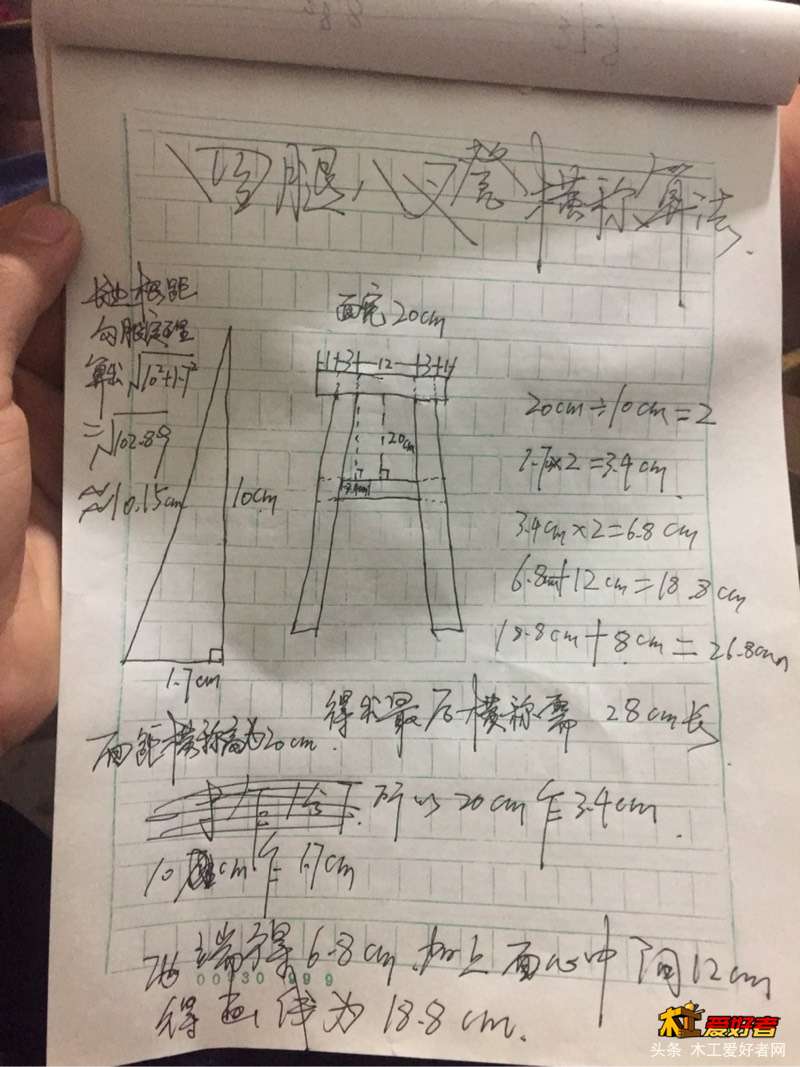 四腿八叉凳横称算法
勾股定理
算出√10²+1.7²
=√102.89
≈10.15cm
10cm
1.7cm
面宽20cm
1 3 12 3 1
20cm
3.4cm
20cm÷10cm=2
1.7×2=3.4cm
3.4cm×2=6.8cm
6.8cm+12cm=18.8cm
18.8cm+8cm=26.8cm
得出最后横称需28cm长
面距横称高为20cm.
所以20cm乍3.4cm.
10cm乍1.7cm
两端乍得6.8cm,加上面的中间12cm
得出净为18.8cm.
00930 999
木工爱好者
头条 木工爱好者网